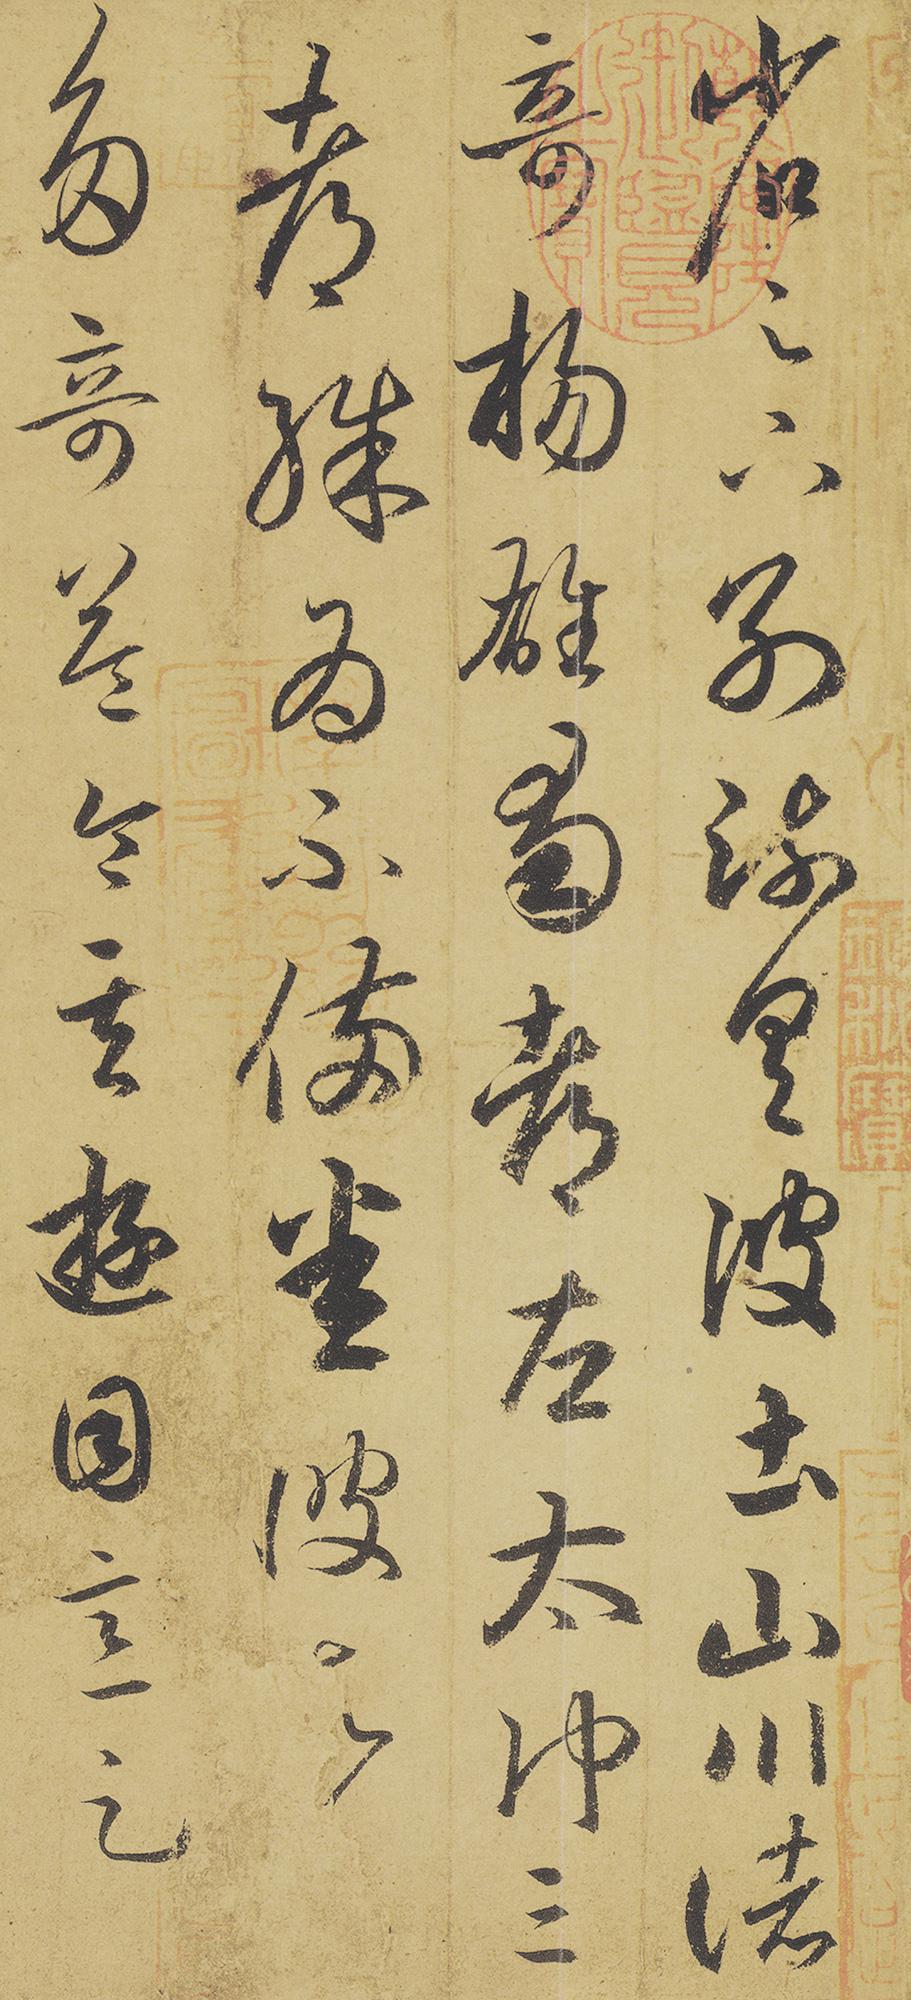 省足下別疏具彼土山川諸
奇揚雄蜀都左太沖三
都殊為不備悉彼故為
多奇益令其遊目意足